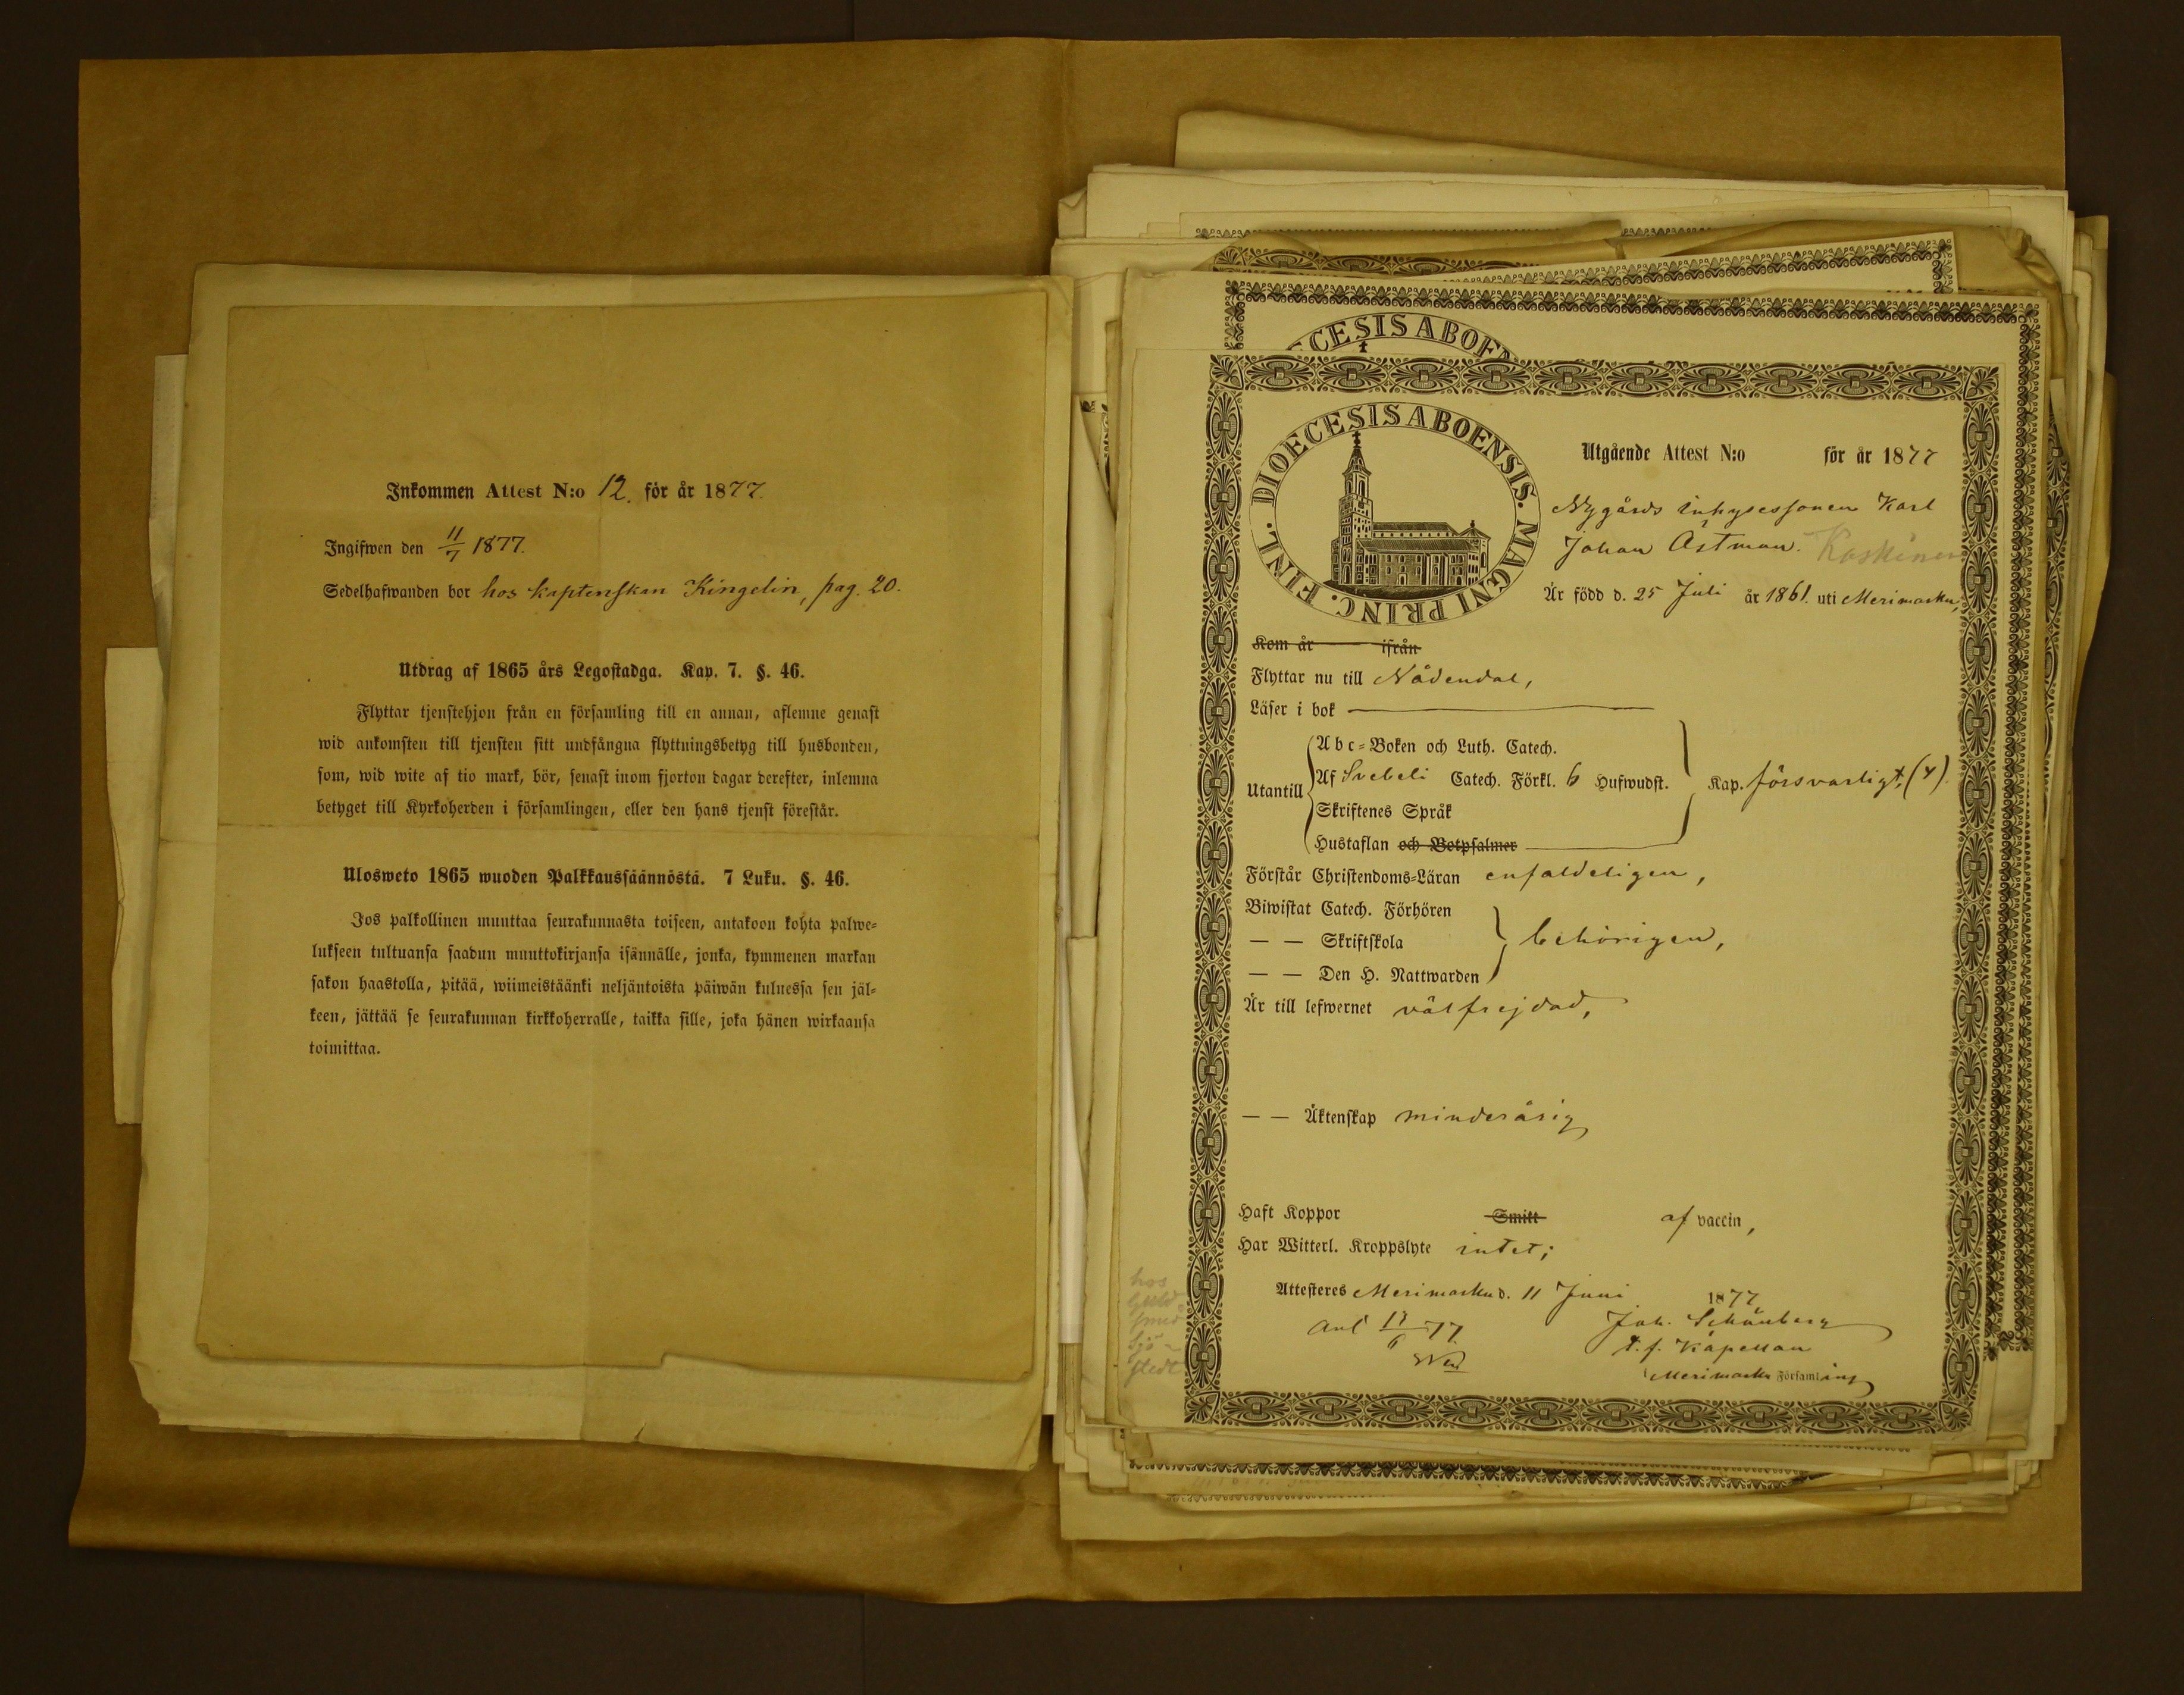 Inkommen Attest N:o 12. för år 1877.
Ingifwen den 11/7 1877.
Sedelhafwanden bor hos kaptenskan Kingelin, pag. 20.
Utdrag af 1865 års Legostadga. Kap. 7. §. 46.
Flyttar tjenstehjon från en församling till en annan, aflemne genast
wid ankomsten till tjensten sitt undfångna flyttningsbetyg till husbonden,
som, wid wite af tio mark, bör, senast inom fjorton dagar derefter, inlemna
betyget till Kyrkoherden i församlingen, eller den hans tjenst förestår.
Ulosweto 1865 wuoden Palkkaussäännöstä. 7 Luku. §. 46.
Jos palkollinen muuttaa seurakunnasta toiseen, antakoon kohta palwe-
lukseen tultuansa saadun muuttokirjansa isännälle, jonka, kymmenen markan
sakon haastolla, pitää, wiimeistäänki neljäntoista päiwän kuluessa sen jäl-
keen, jättää se seurakunnan kirkkoherralle, taikka sille, joka hänen wirkaansa
toimittaa.
CESIS ABOEN
DIOECESIS ABOENSIS. MAGNI PRINC. FINL.
Utgående Attest N:o för år 1877
Nygårds inhysessonen Karl
Johan Östman. Koskinen
Är född d. 25 Juli år 1861. uti Merimasku,
Kom år ifrån
Flyttar nu till Nådendal,
Läser i bok
Utantill
Abc-Boken och Luth. Catech.
Af Svebeli Catech. Förkl. 6 Hufwudst. Kap. försvarligt, (4).
Skriftenes Språk
Hustaflan och Botpsalmer
Förstår Christendoms-Läran enfaldeligen,
Biwistat Catech. Förhören
— — Skriftskola behörigen,
— — Den H. Nattwarden
Är till lefwernet välfrejdad,
— — Äktenskap minderårig
Haft Koppor Smitt af vaccin,
Har Witterl. Kroppslyte intet;
Attesteres Merimasku d. 11 Juni 1877
Joh. Schönberg
t. f. Kapellan
Merimasku Församling
hos
Guld-
smed
Sjö-
stedt